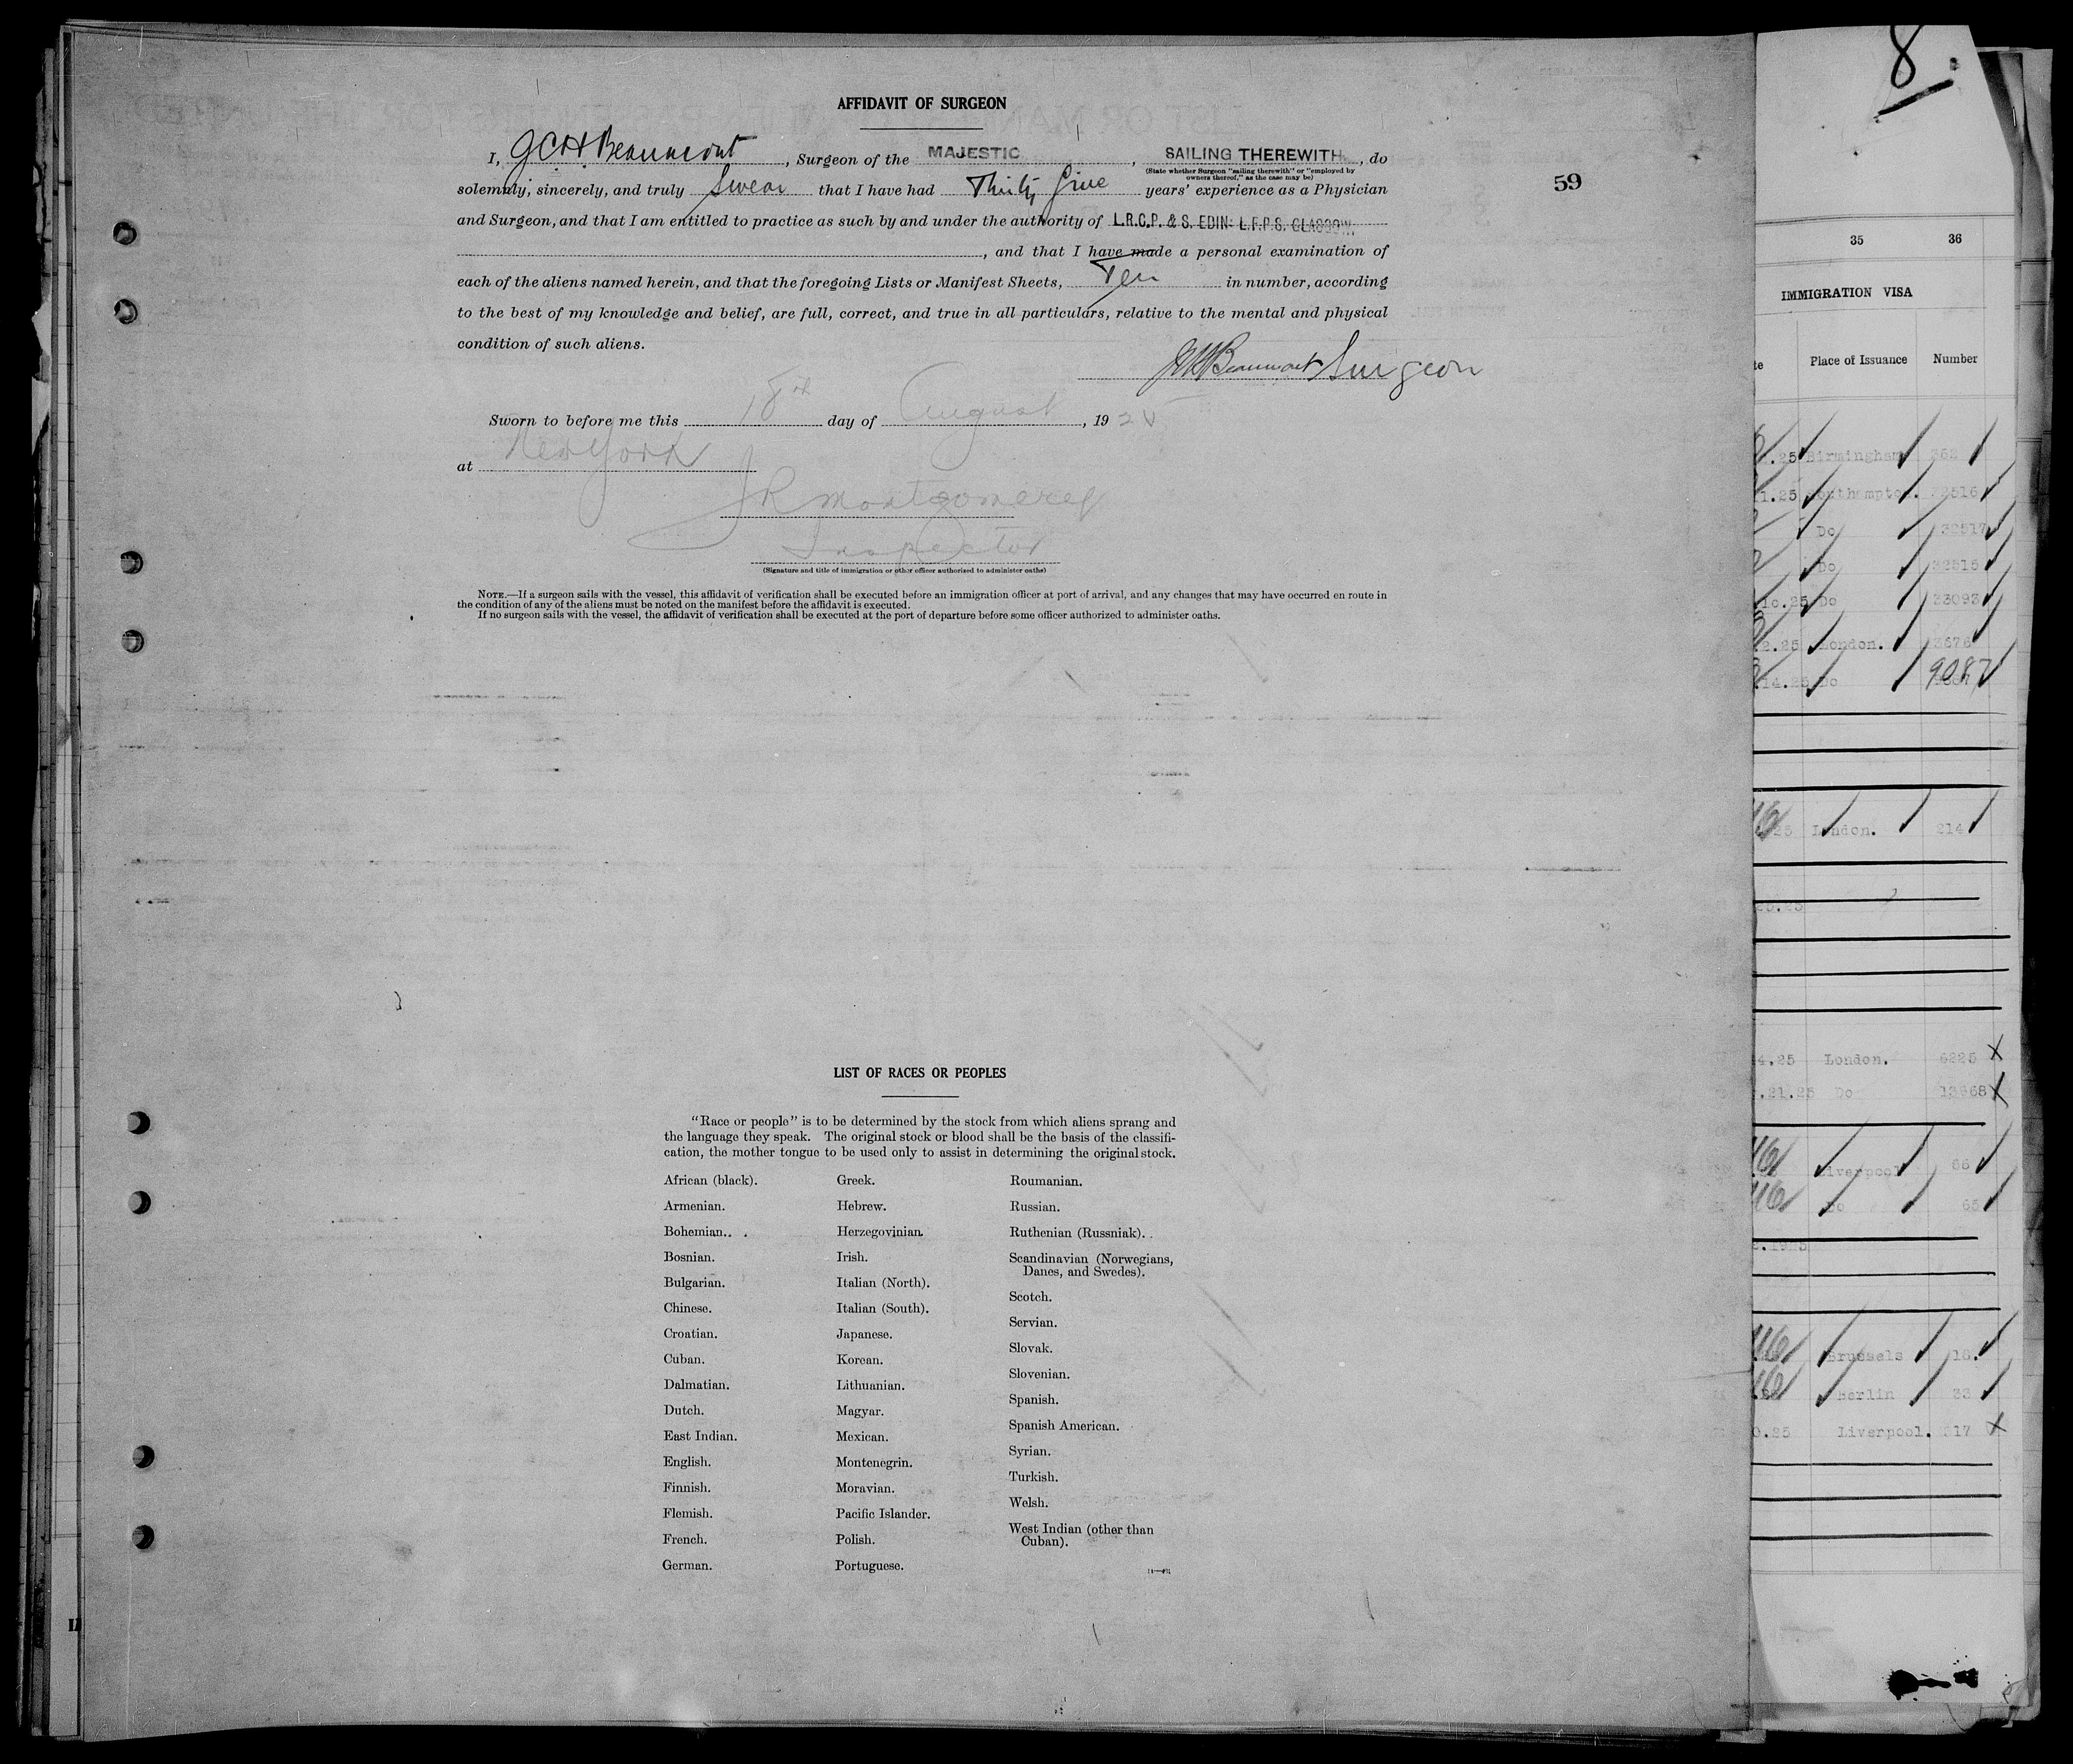 AFFIDAVIT OF SURGEON
I, JCH Beaumont, Surgeon of the MAJESTIC, SAILING THEREWITH, do
(State whether Surgeon "sailing therewith" or "employed by
owners thereof," as the case may be)
solemnly, sincerely, and truly Swear that I have had Thirty five years' experience as a Physician
59
and Surgeon, and that I am entitled to practice as such by and under the authority of L.R.C.P. & S. EDIN: L.F.P.S. GLASGOW.
, and that I have made a personal examination of
each of the aliens named herein, and that the foregoing Lists or Manifest Sheets, Ten in number, according
to the best of my knowledge and belief, are full, correct, and true in all particulars, relative to the mental and physical
condition of such aliens.
JCH Beaumont Surgeon
Sworn to before me this 18th day of August, 1925
at New York
JR Montgomery
Inspector
(Signature and title of immigration or other officer authorized to administer oaths)
NOTE.—If a surgeon sails with the vessel, this affidavit of verification shall be executed before an immigration officer at port of arrival, and any changes that may have occurred en route in
the condition of any of the aliens must be noted on the manifest before the affidavit is executed.
If no surgeon sails with the vessel, the affidavit of verification shall be executed at the port of departure before some officer authorized to administer oaths.
LIST OF RACES OR PEOPLES
"Race or people" is to be determined by the stock from which aliens sprang and
the language they speak. The original stock or blood shall be the basis of the classifi-
cation, the mother tongue to be used only to assist in determining the original stock.
African (black).
Armenian.
Bohemian.
Bosnian.
Bulgarian.
Chinese.
Croatian.
Cuban.
Dalmatian.
Dutch.
East Indian.
English.
Finnish.
Flemish.
French.
German.
Greek.
Hebrew.
Herzegovinian.
Irish.
Italian (North).
Italian (South).
Japanese.
Korean.
Lithuanian.
Magyar.
Mexican.
Montenegrin.
Moravian.
Pacific Islander.
Polish.
Portuguese.
Roumanian.
Russian.
Ruthenian (Russniak).
Scandinavian (Norwegians,
Danes, and Swedes).
Scotch.
Servian.
Slovak.
Slovenian.
Spanish.
Spanish American.
Syrian.
Turkish.
Welsh.
West Indian (other than
Cuban).
8.
35 36
IMMIGRATION VISA
Place of Issuance Number
.25 Birmingham
1.25 Southampton. 32516
Do 32517
Do 32515
10.25 Do 33093
2.25 London. 3676
14.25 Do 9087
25 London. 214
4.25 London. 6225
.21.25 Do 13968
Liverpool 66
Do 65
Brussels 18.
Berlin 33
0.25 Liverpool. 317